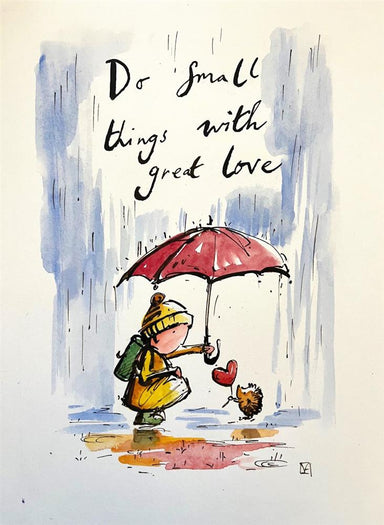 Do small
things with
great love